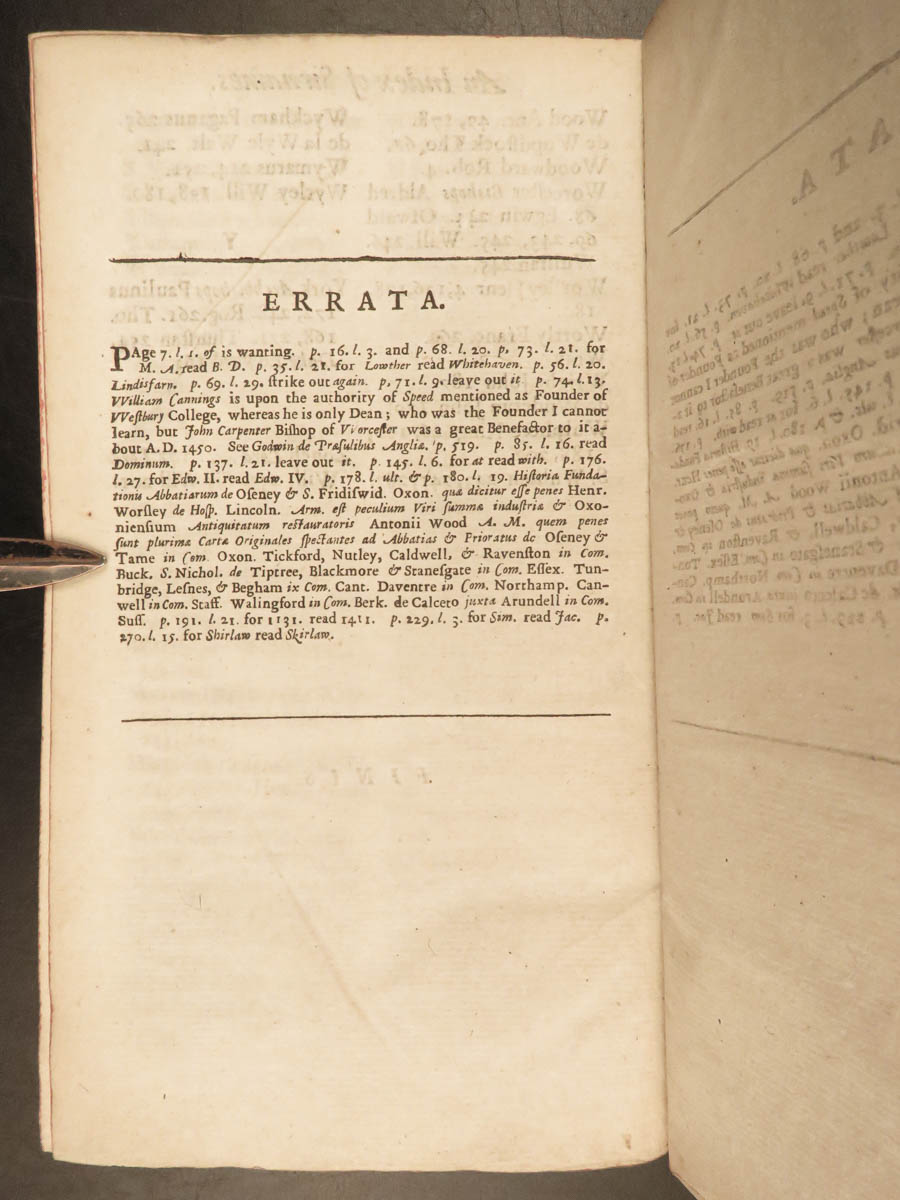 ERRATA.
PAge 7. l. 1. of is wanting. p. 16. l. 3. and p. 68. l. 20. p. 73. l. 21. for
M. A. read B. D. p. 35. l. 21. for Lowther read Whitehaven. p. 56. l. 20.
Lindisfarn. p. 69. l. 29. ſtrike out again. p. 71. l. 9. leave out it p. 74. l. 13.
William Cannings is upon the authority of Speed mentioned as Founder of
Weſtbury College, whereas he is only Dean; who was the Founder I cannot
learn, but John Carpenter Biſhop of Worceſter was a great Benefactor to it a-
bout A. D. 1450. See Godwin de Præſulibus Angliæ. p. 519. p. 85. l. 16. read
Dominum. p. 137. l. 21. leave out it. p. 145. l. 6. for at read with. p. 176.
l. 27. for Edw. II. read Edw. IV. p. 178. l. ult. & p. 180. l. 19. Hiſtoria Funda-
tionu Abbatiarum de Oſeney & S. Fridiſwid. Oxon. quæ dicitur eſſe penes Henr.
Worſley de Hoſp. Lincoln. Arm. eſt peculium Viri ſumma induſtria & Oxo-
nienſium Antiquitatum reſtauratoris Antonii Wood A. M. quem penes
ſunt plurima Cartæ Originales ſpectantes ad Abbatias & Prioratus de Oſeney &
Tame in Com. Oxon. Tickford, Nutley, Caldwell, & Ravenſton in Com.
Buck. S. Nichol. de Tiptree, Blackmore & Staneſgate in Com. Eſſex. Tun-
bridge, Leſnes, & Begham ix Com. Cant. Daventre in Com. Northamp. Can-
well in Com. Staff. Walingford in Com. Berk. de Calceto juxta Arundell in Com.
Suſſ. p. 191. l. 21. for 1131. read 1411. p. 229. l. 3. for Sim. read Jac. p.
270. l. 15. for Shirlaw read Skirlaw.